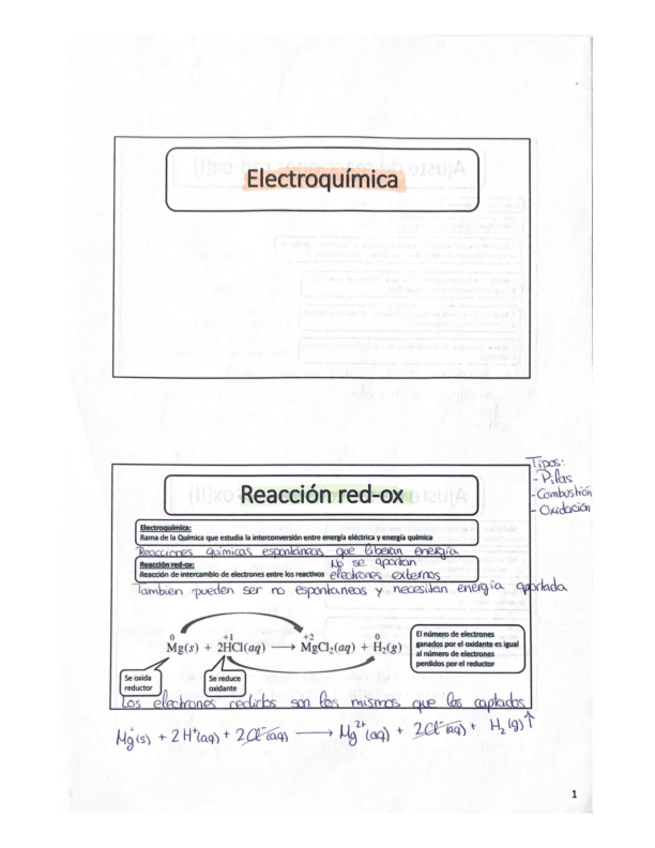 Electroquímica
Tipos:
- Pilas
- Combustión
- Oxidación
Reacción red-ox
Electroquímica:
Rama de la Química que estudia la interconversión entre energía eléctrica y energía química
Reacciones químicas espontáneas que liberan energía
Reacción red-ox:
No se aportan
Reacción de intercambio de electrones entre los reactivos
electrones externos
Tambien pueden ser no espontaneas y necesitan energia aportada
0 +1 +2 0
Mg(s) + 2HCl(aq) ⟶ MgCl₂(aq) + H₂(g)
El número de electrones
ganados por el oxidante es igual
al número de electrones
perdidos por el reductor
Se oxida
reductor
Se reduce
oxidante
Los electrones cedidos son los mismos que los captados
Mg(s) + 2H⁺(aq) + 2Cl⁻(aq) ⟶ Mg²⁺(aq) + 2Cl⁻(aq) + H₂(g)↑
1